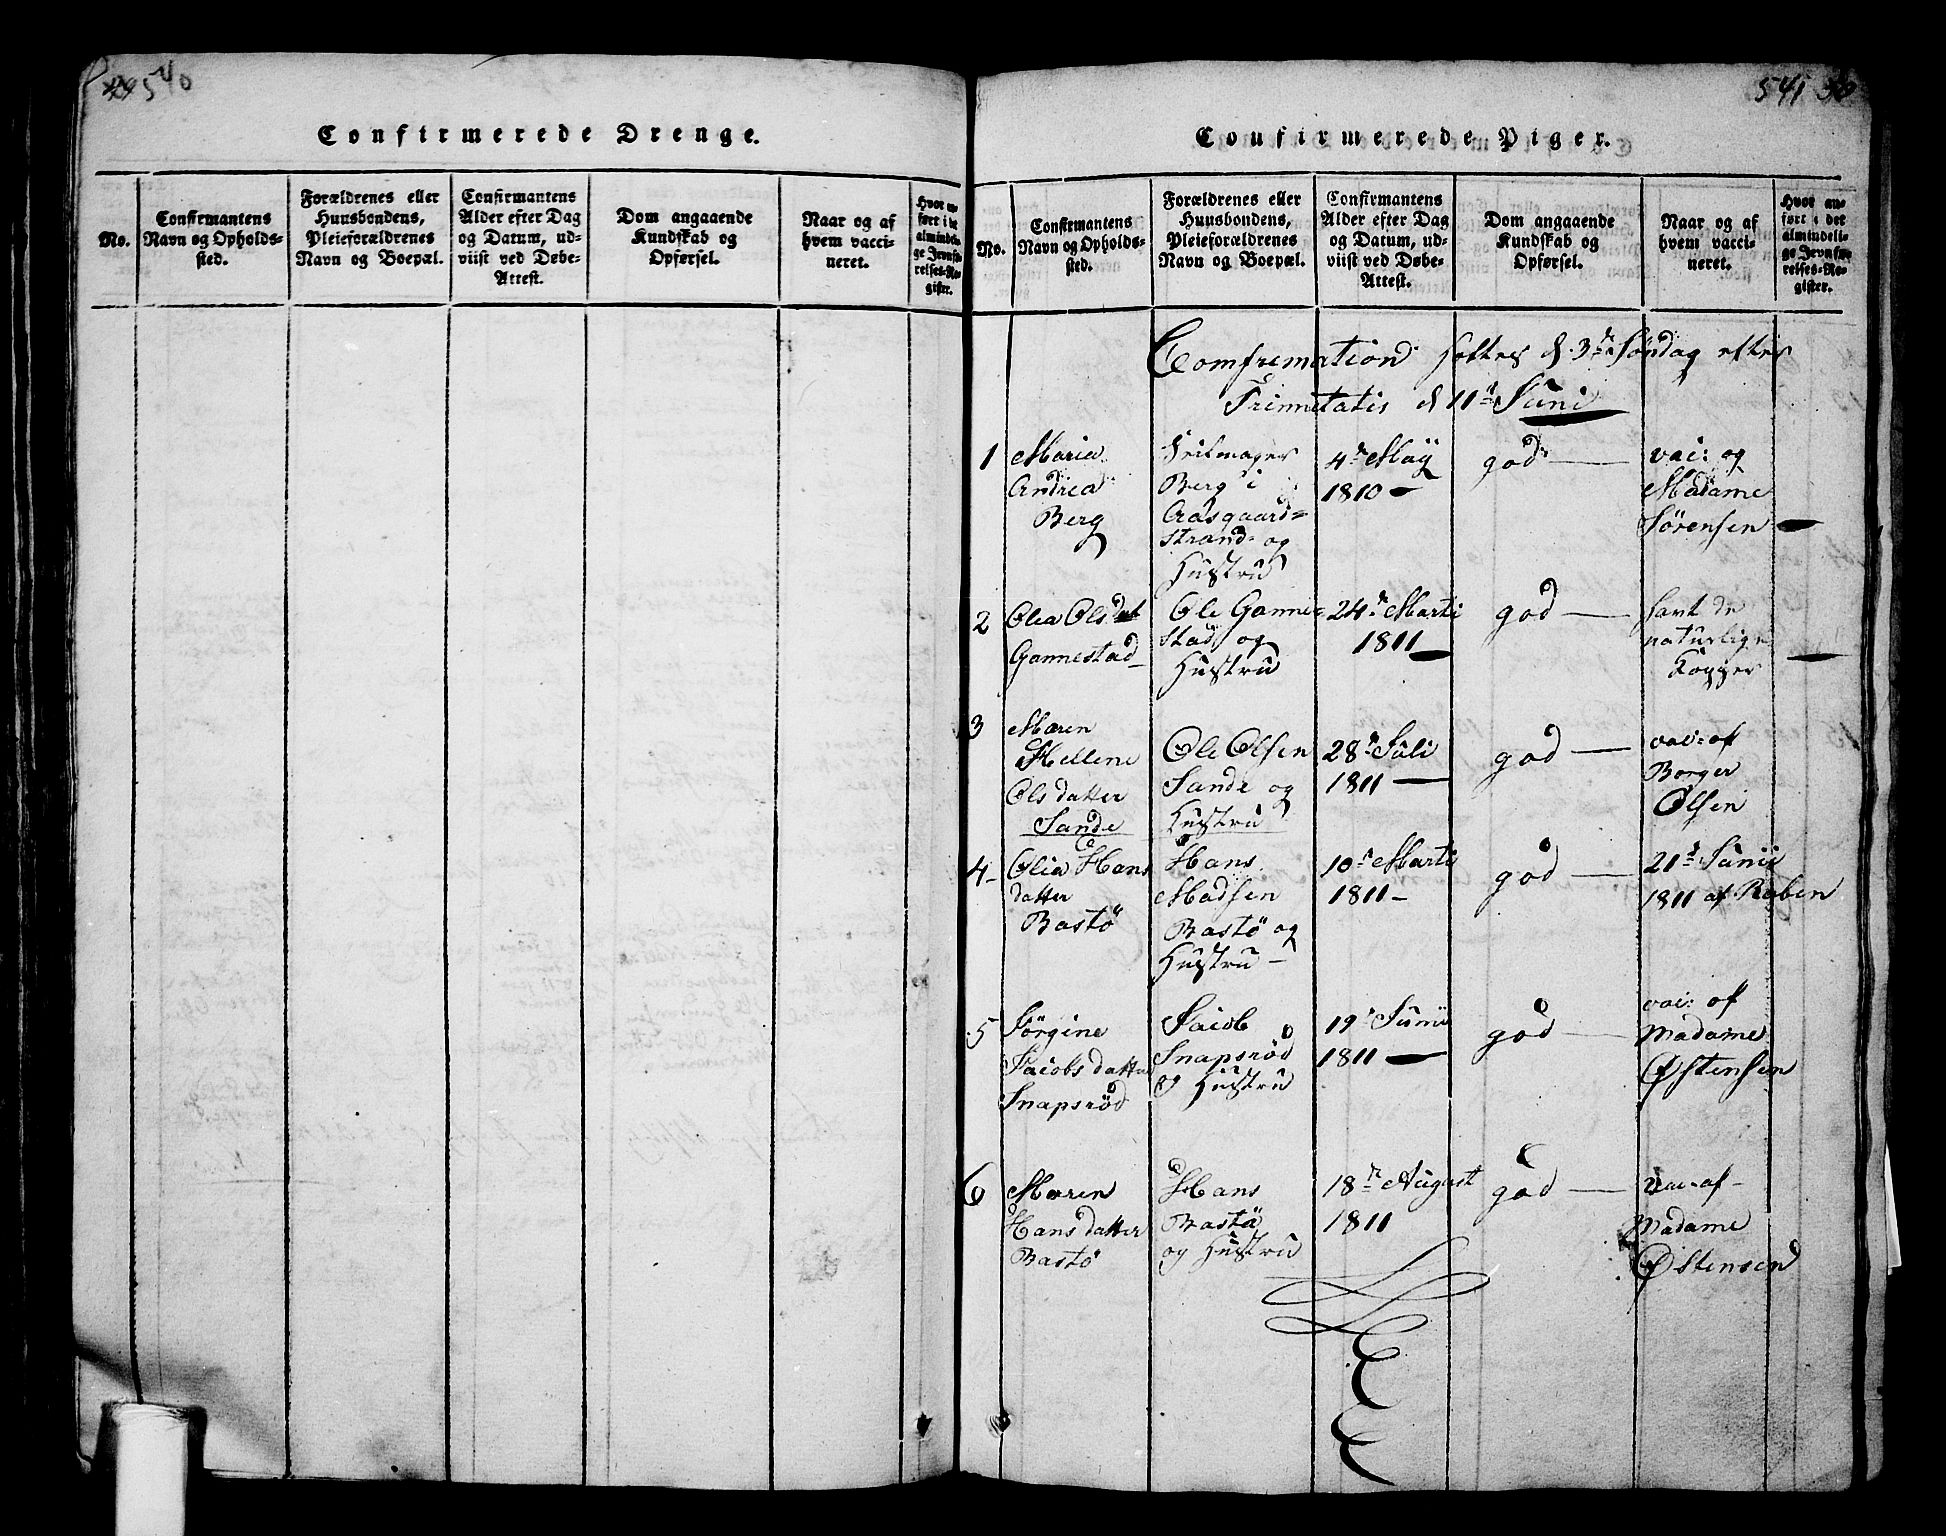 540
Confirmerede Drenge.
No.
Confirmantens
Navn og Opholds-
sted.
Forældrenes eller
Huusbondens,
Pleieforældrenes
Navn og Boepæl.
Confirmantens
Alder efter Dag
og Datum, ud-
viist ved Døbe-
Attest.
Dom angaaende
Kundskab og
Opførsel.
Naar og af
hvem vacci-
neret.
Hvor an-
ført i det
almindeli-
ge Jevnfø-
relses-Re-
gister.
541 30
Confirmerede Piger.
No.
Confirmantens
Navn og Opholds-
sted.
Forældrenes eller
Huusbondens,
Pleieforældrenes
Navn og Boepæl.
Confirmantens
Alder efter Dag
og Datum, ud-
viist ved Døbe-
Attest.
Dom angaaende
Kundskab og
Opførsel.
Naar og af
hvem vacci-
neret.
Hvor an-
ført i det
almindeli-
ge Jevnfø-
relses-Re-
gister.
Comfremation d. 3de Søndag efter
Trinnitatis d 11te Juni
1
Maria
Andrea
Berg
Berg i
Aasgaard=
strand= og
Hustru
4de Maÿ
1810 —
god —
vai: og
Madame
Sørensen —
2
Olea Olsdat
Gannestad
Ole Ganne=
stad og
Hustru
24de Marti
1811 —
god —
havt de
naturlige
Kopper —
3
Maren
Hellene
Olsdatter
Sande
Ole Olsen
Sande og
Hustru
28de Juli
1811 —
god —
vai: af
Borger
Olsen
4
Olia Hans
datter
Bastö
Hans
Madsen
Bastö og
Hustru —
10de Marti
1811 —
god —
21de Junii
1811 af Raben
5
Jörgine
Jacobsdatter
Snapsröd
Jacob
Snapsröd
og Hustru
19de Junii
1811 —
god —
vai: af
Madame
Østensen
6
Maren
Hansdatter
Bastö
Hans
Bastö
og Hustru
18de August
1811
god —
vai: af
Madame
Østensen